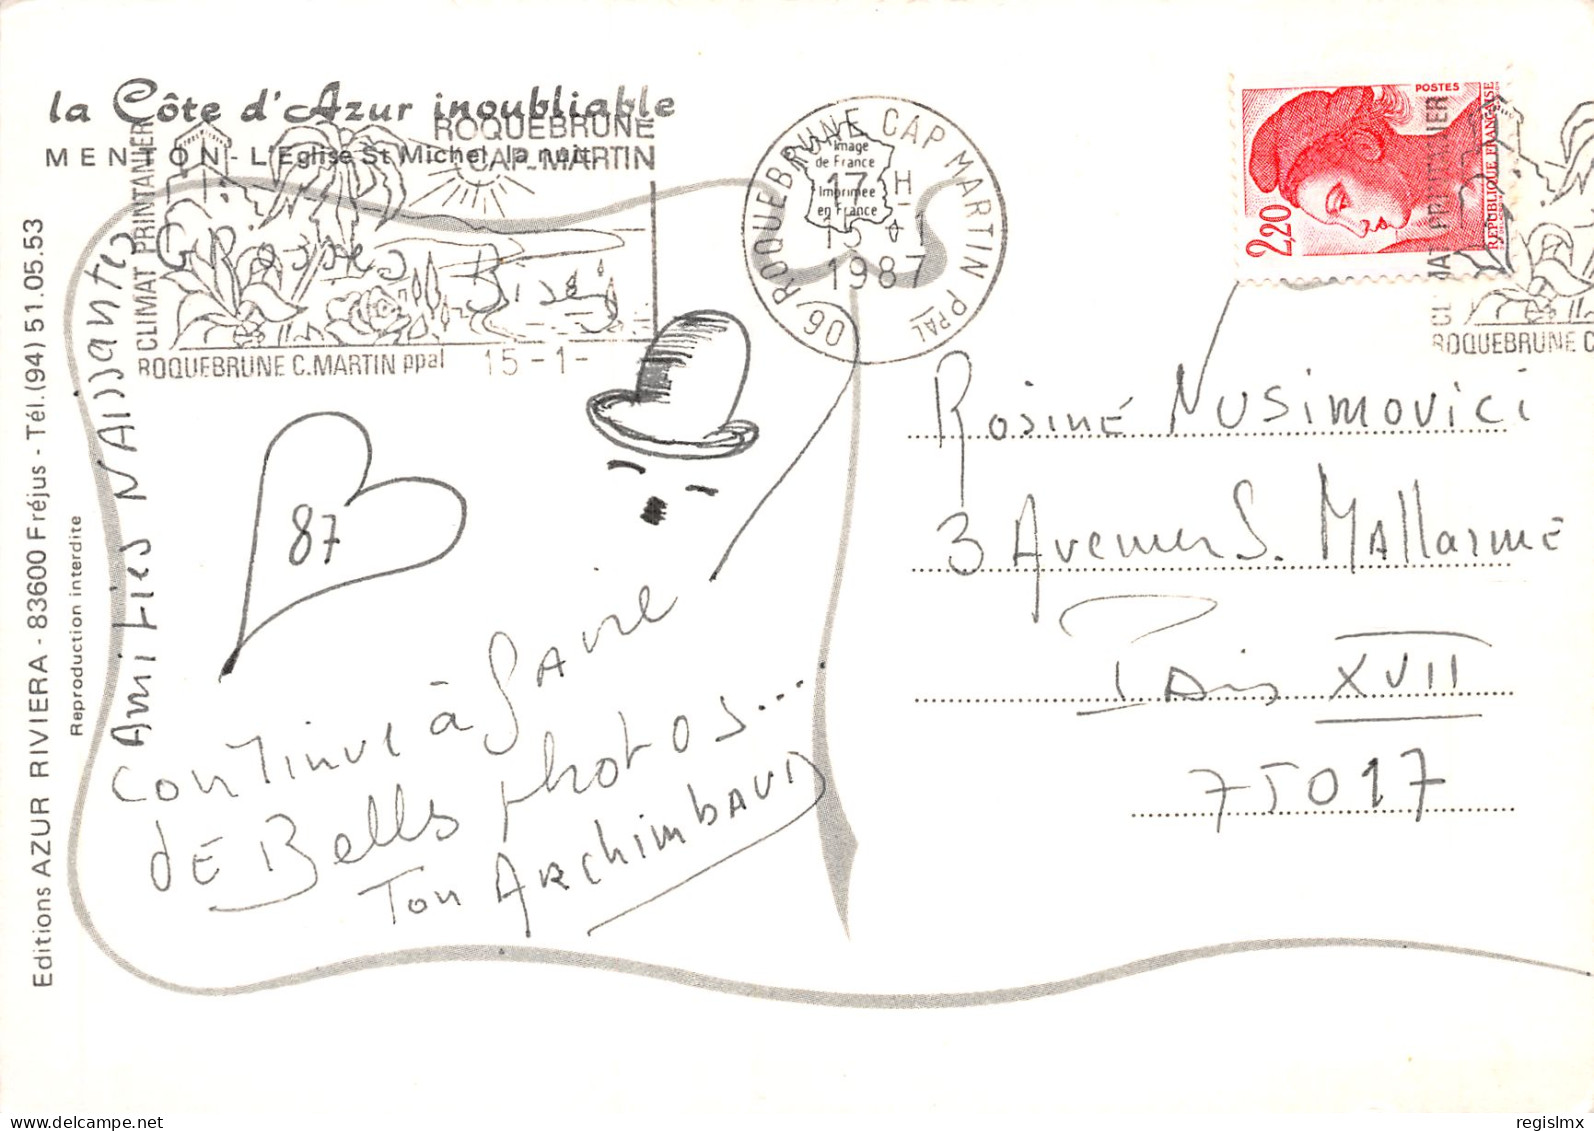 la Côte d'Azur inoubliable
MENTON - L'Eglise St Michel, la nuit.
ROQUEBRUNE
CAP-MARTIN
CLIMAT PRINTANIER
ROQUEBRUNE C.MARTIN ppal 15-1-
ROQUEBRUNE CAP MARTIN PPAL
06
17 H
15 -1
1987
Image
de France
Imprimée
en France
POSTES
2,20
REPUBLIQUE FRANÇAISE
CLIMAT PRINTANIER
ROQUEBRUNE C
Editions AZUR RIVIERA - 83600 Fréjus - Tél. (94) 51.05.53
Reproduction interdite
AmiTiés NAissantes
GRosses Bises
87
continue à Faire
dE Belles photos...
Ton ArchimbAUD
Rosine NUSimovici
3 Avenue S. MAllarmé
PAris XVII
75017
regislmx